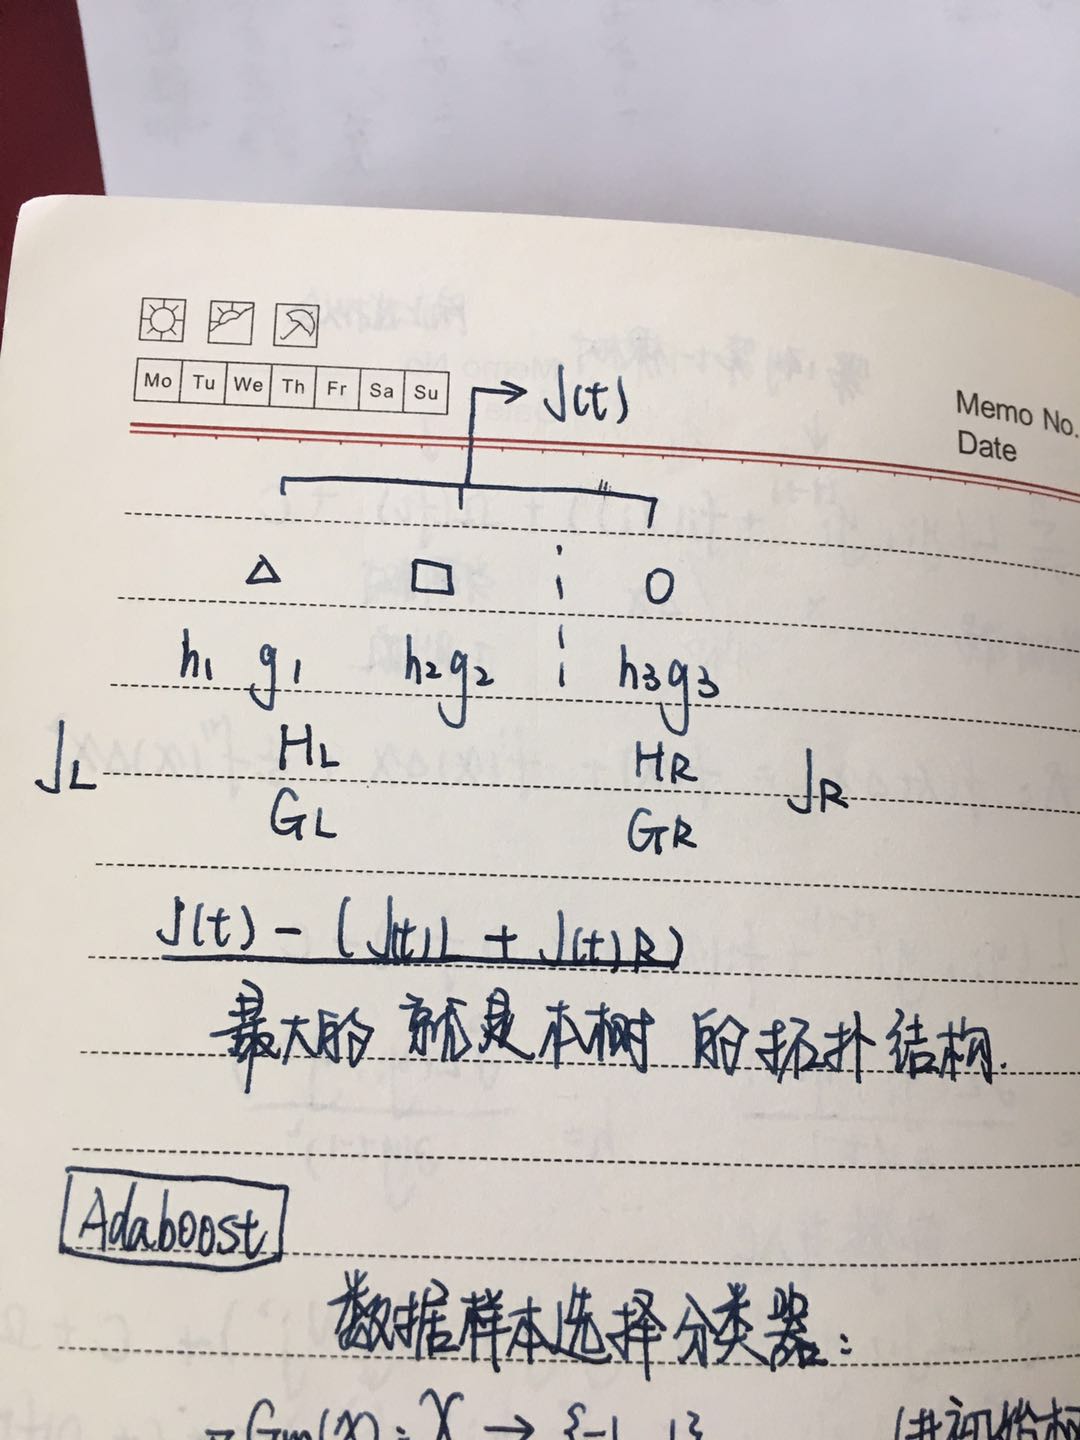 Mo Tu We Th Fr Sa Su
J(t)
Memo No.
Date
h1 g1 h2 g2 h3 g3
JL HL HR JR
GL GR
J(t) - (J(t)L + J(t)R)
最大的 就是本树 的拓扑结构.
Adaboost
数据样本选择分类器:
Gm(x): X → {-1, 1}